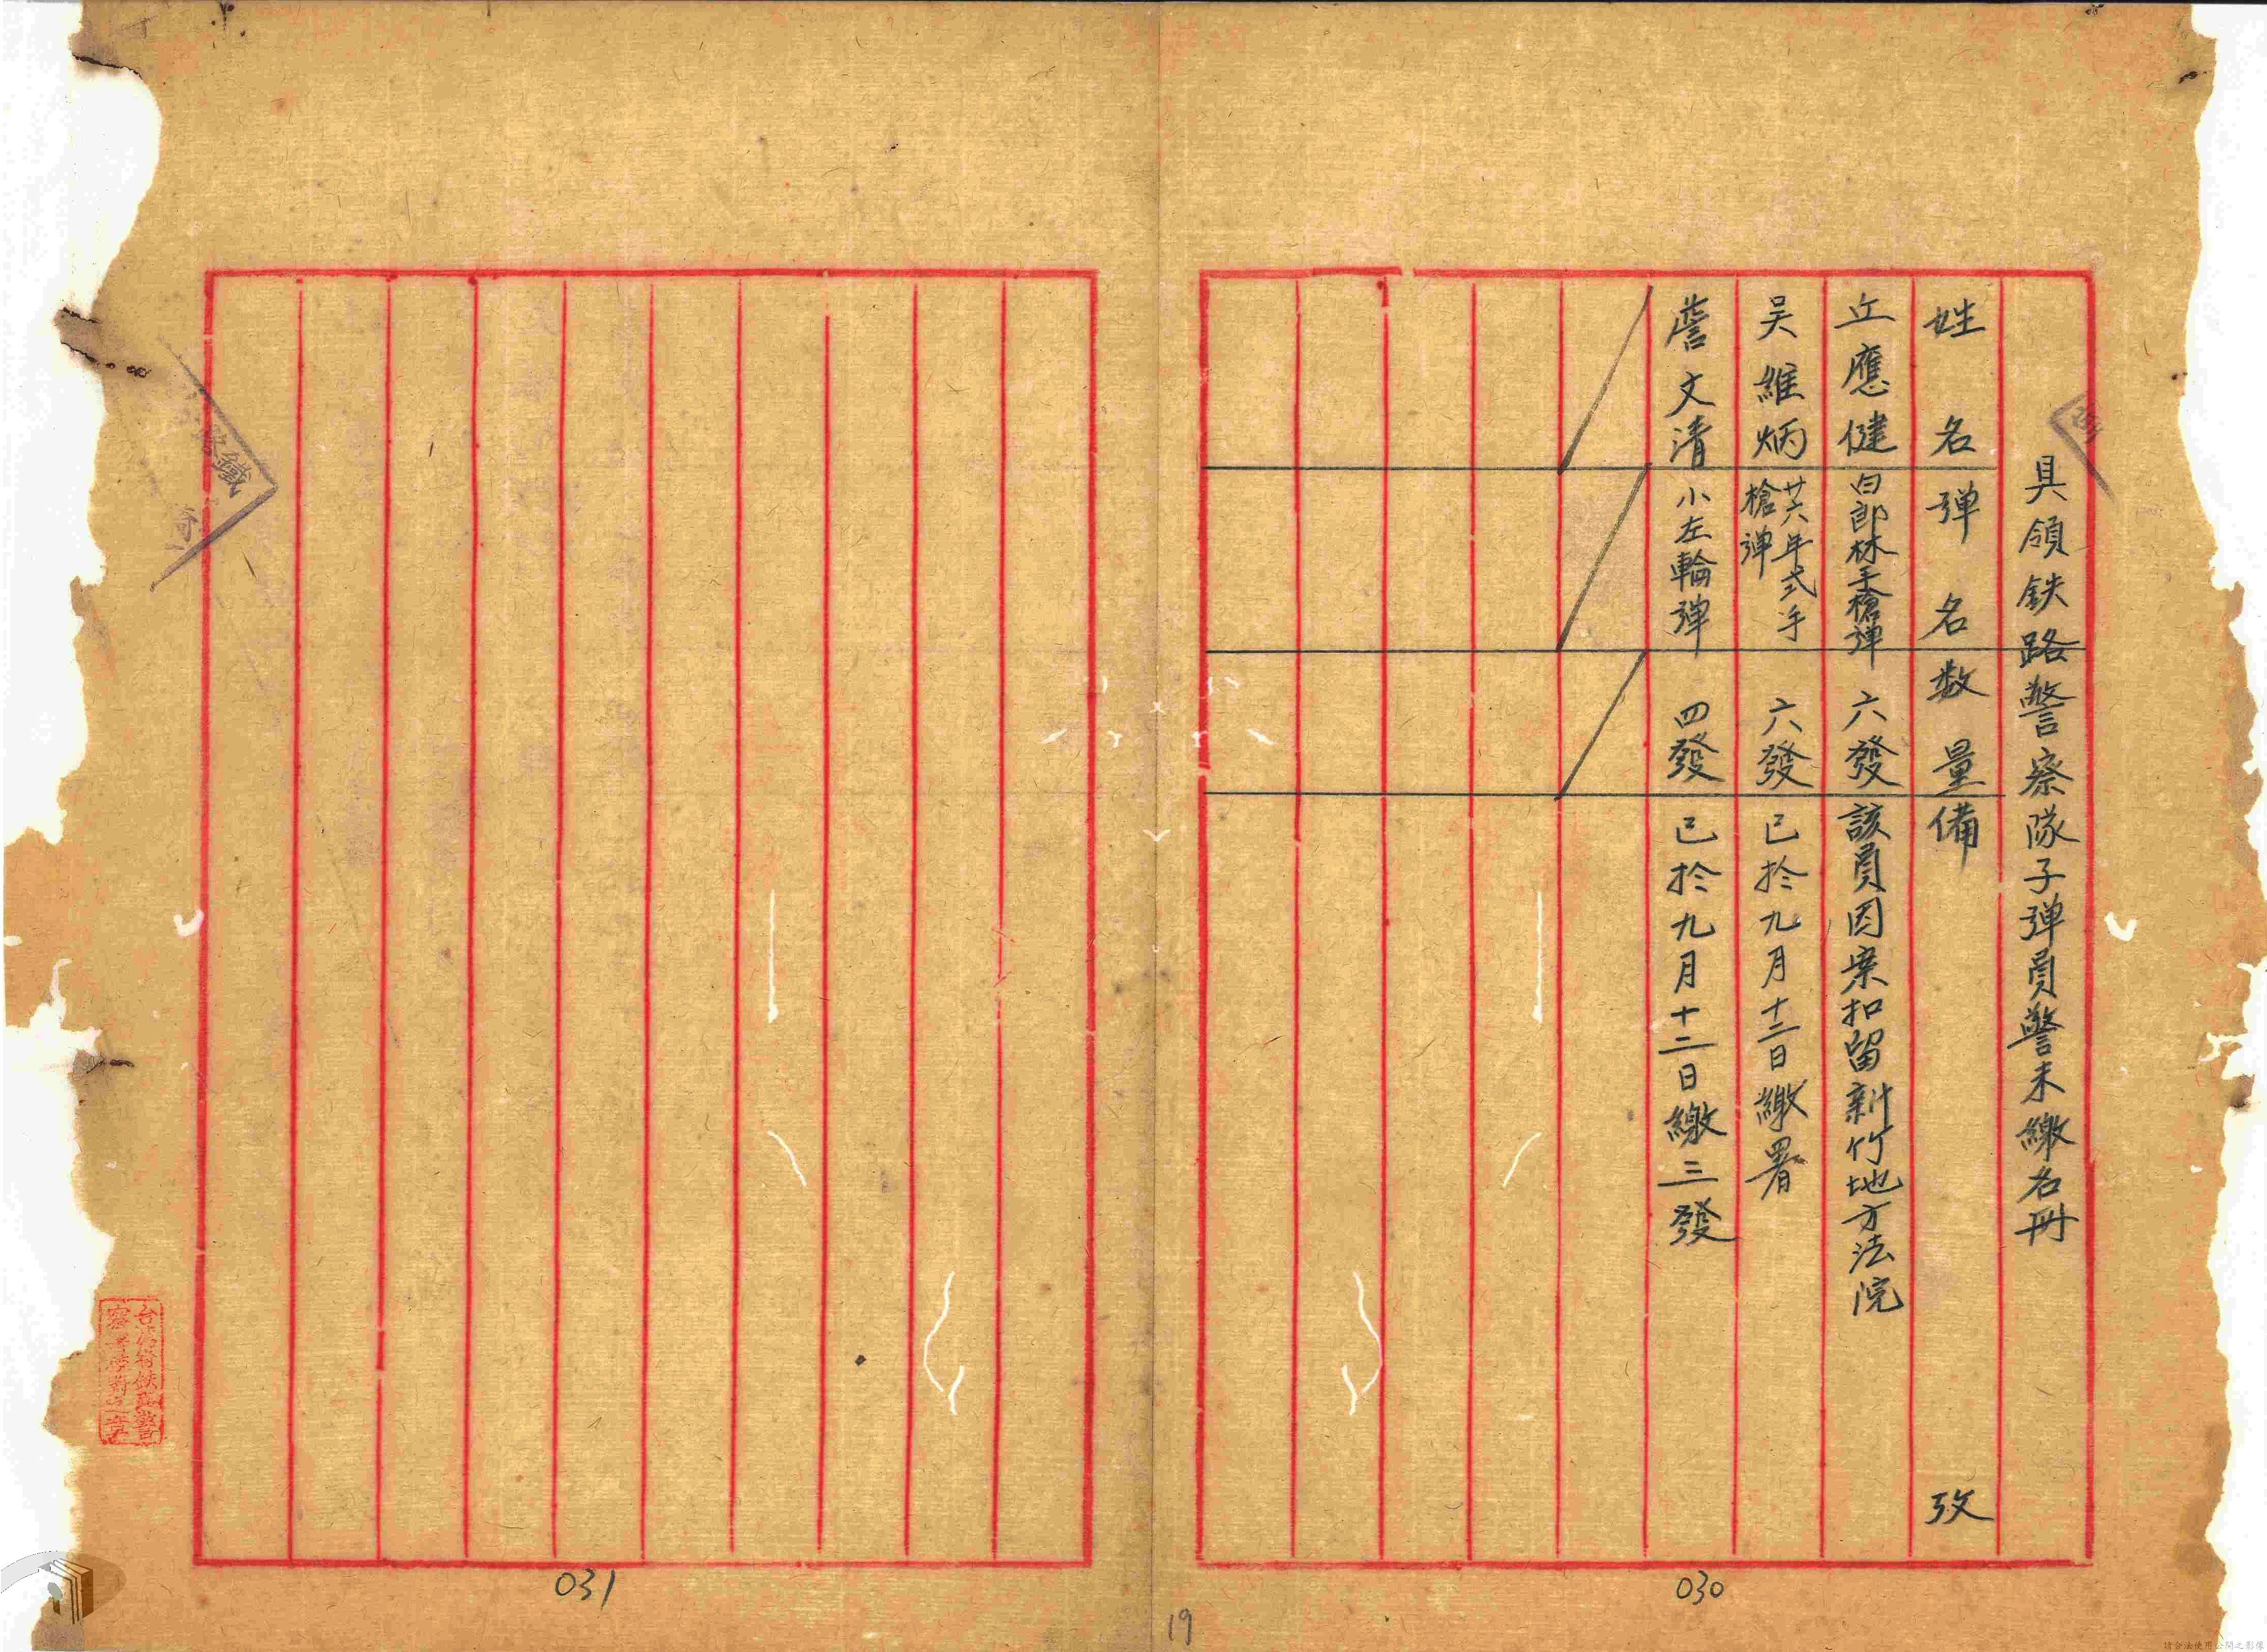 具領鉄路警察隊子弾員警未繳名冊
姓名 弾名 数量 備攷
丘應健 白郎林手槍弾 六發 該員因案扣留新竹地方法院
吴維炳 廿六年式手槍弾 六發 已於九月十二日繳署
詹文清 小左輪弾 四發 已於九月十二日繳三發
030
031
19
路鐵
請合法使用公開之影像